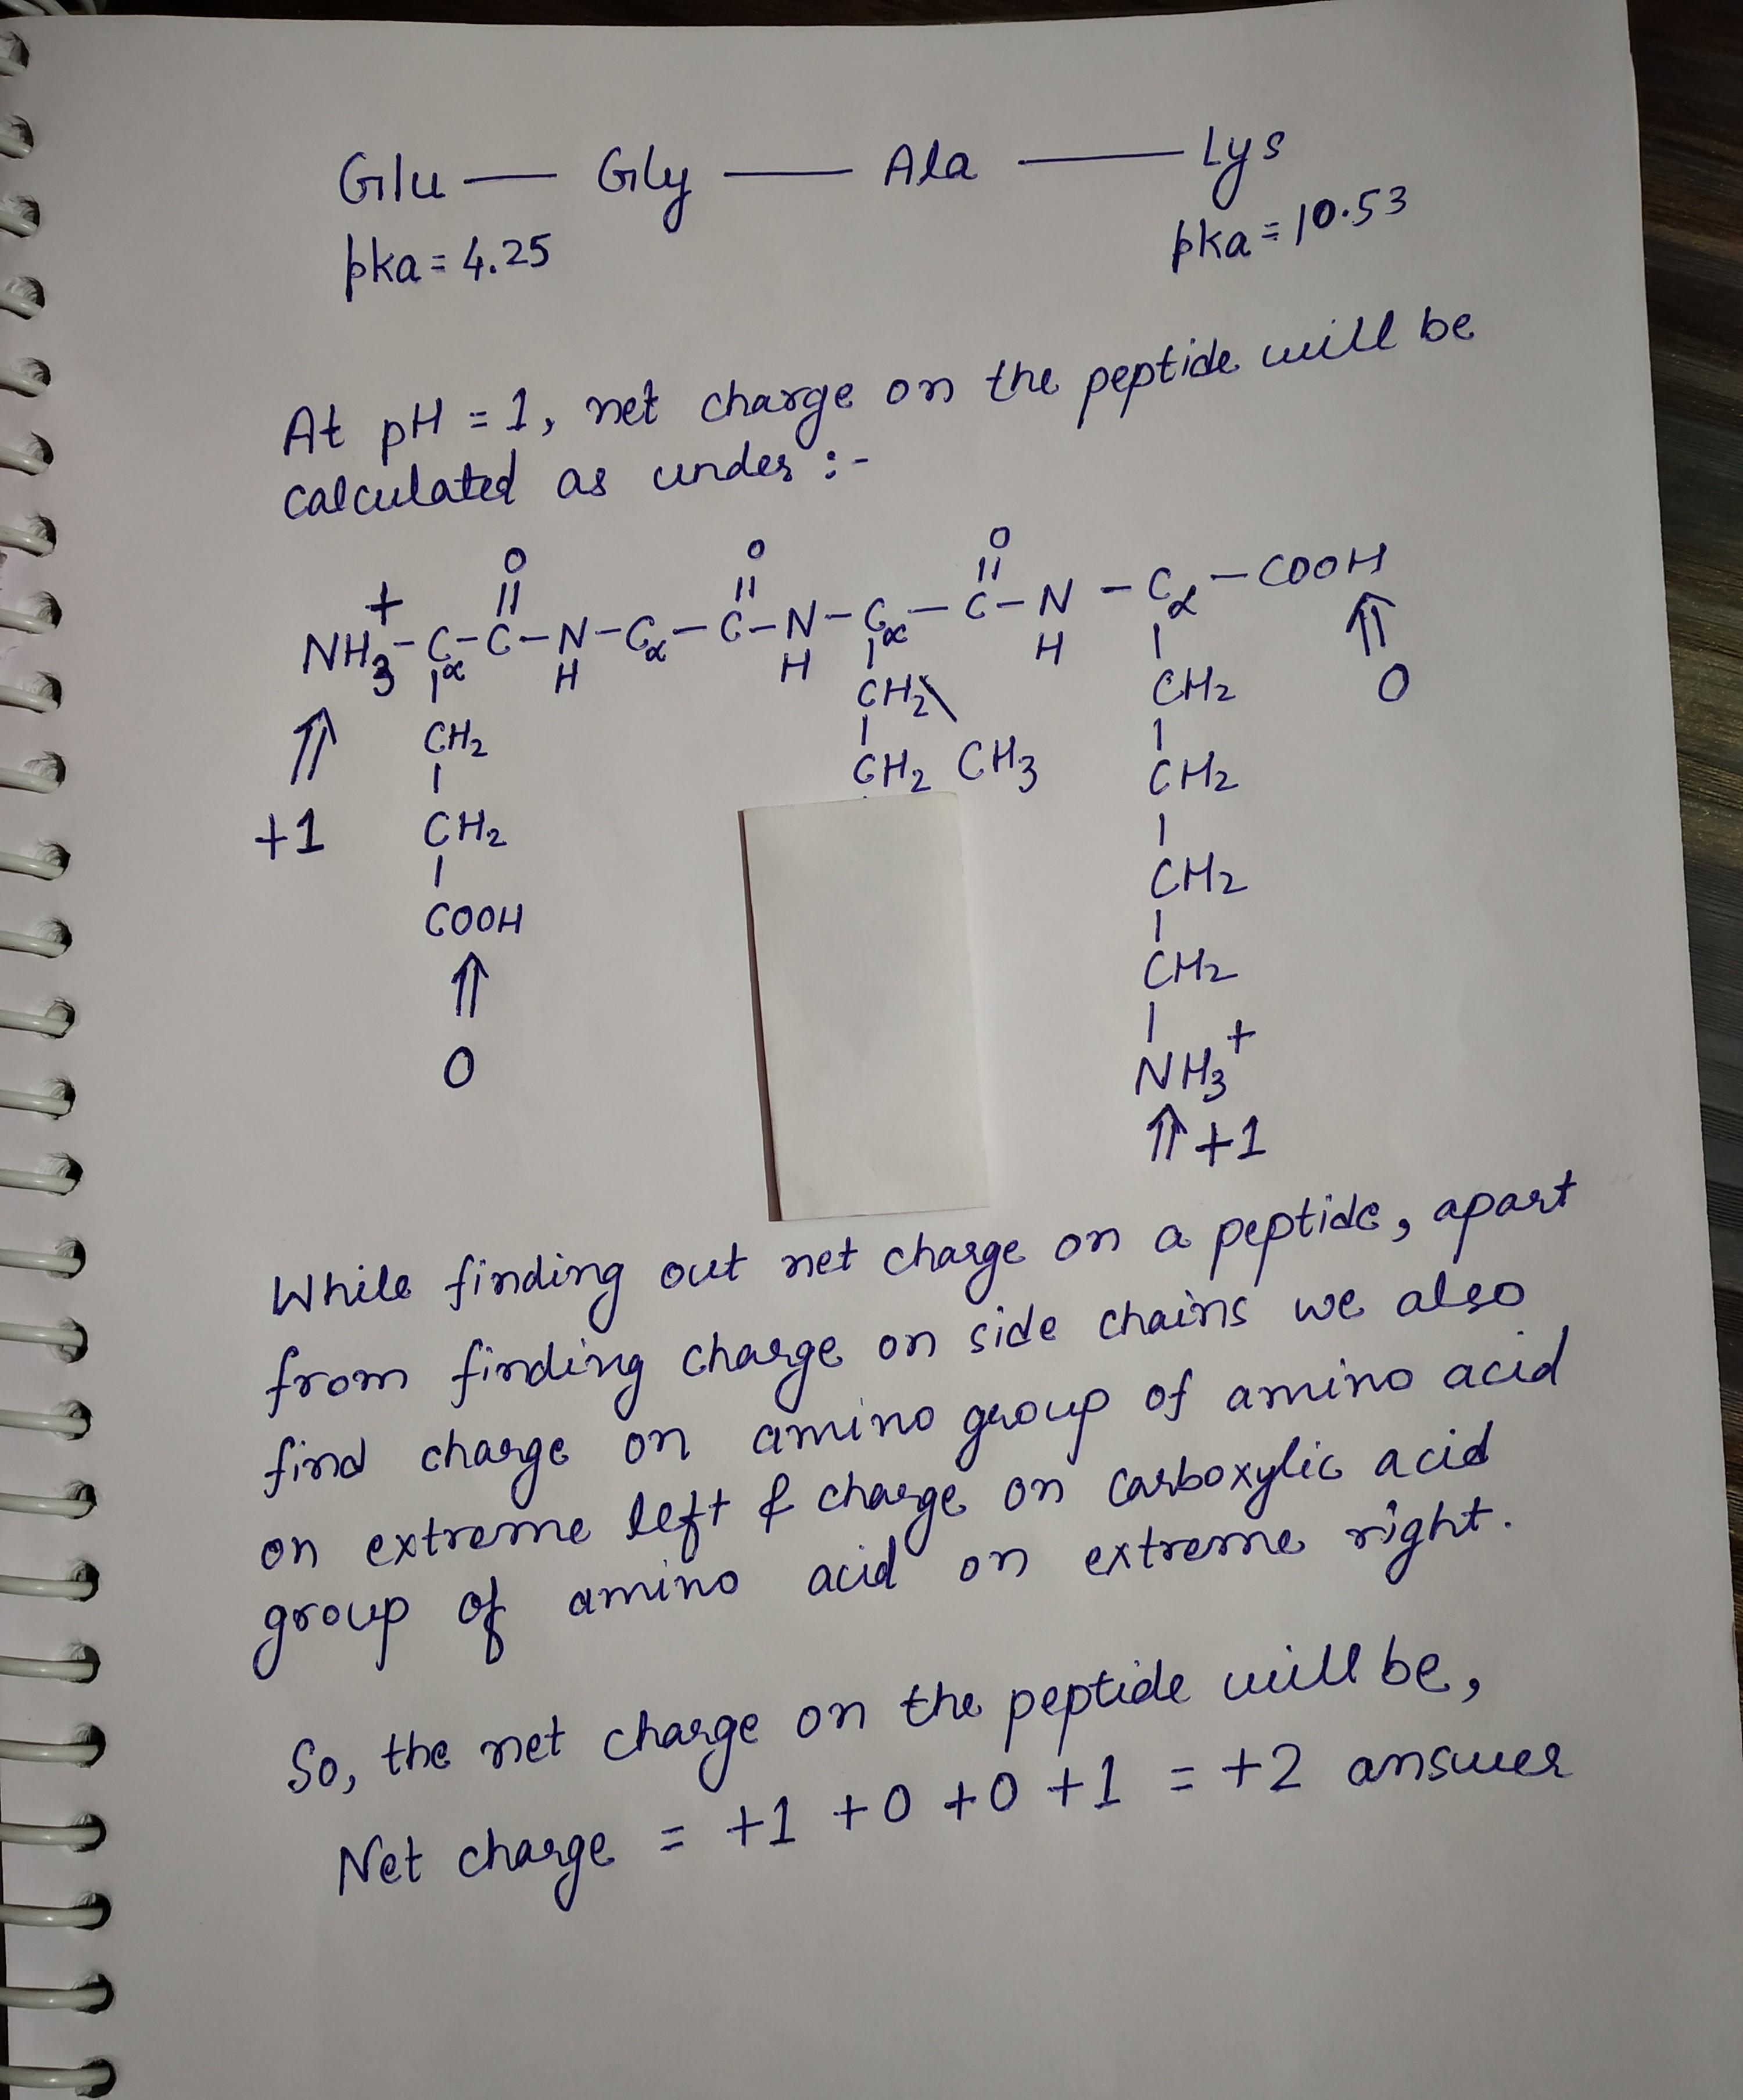 Glu — Gly — Ala — Lys
pka = 4.25 pka = 10.53
At pH = 1, net charge on the peptide will be
calculated as under :-
O O O
|| || ||
+
NH3 - Cα - C - N - Cα - C - N - Cα - C - N - Cα - COOH
H H H
⇑ CH2 CH2 CH2 ⇑
+1 CH2 CH2 CH3 CH2 0
COOH CH2
⇑ CH2
0 NH3+
⇑ +1
While finding out net charge on a peptide, apart
from finding charge on side chains we also
find charge on amino group of amino acid
on extreme left & charge on carboxylic acid
group of amino acid on extreme right.
So, the net charge on the peptide will be,
Net charge = +1 +0 +0 +1 = +2 answer